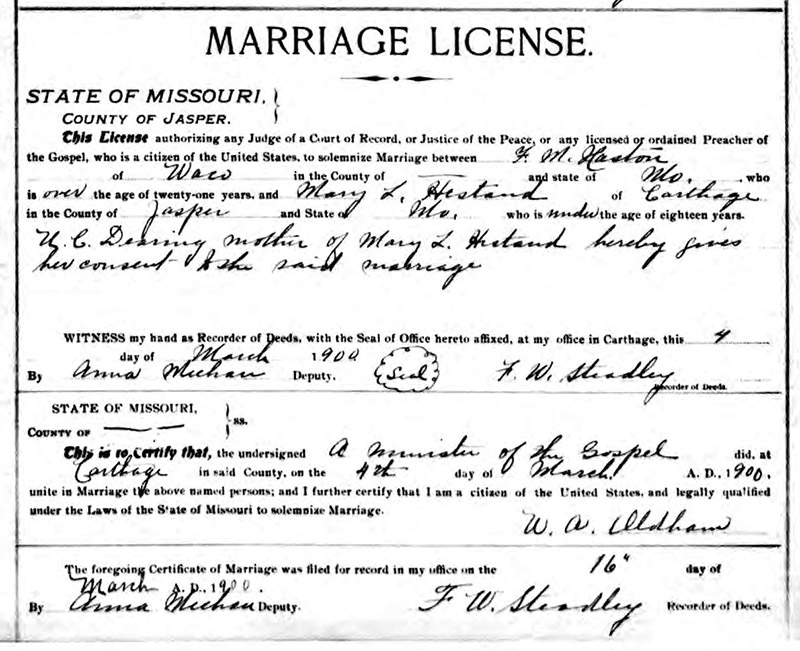 MARRIAGE LICENSE.
STATE OF MISSOURI,
COUNTY OF JASPER.
This License authorizing any Judge of a Court of Record, or Justice of the Peace, or any licensed or ordained Preacher of
the Gospel, who is a citizen of the United States, to solemnize Marriage between F. M. Haston
of Waco in the County of — and state of Mo. who
is over the age of twenty-one years, and Mary L. Hestand of Carthage
in the County of Jasper and State of Mo. who is under the age of eighteen years.
Dearing mother of Mary L. Hestand hereby gives
her consent to the said marriage
WITNESS my hand as Recorder of Deeds, with the Seal of Office hereto affixed, at my office in Carthage, this 4
day of March 1900
By Anna Meehan Deputy. (Seal) F. W. Steadley
Recorder of Deeds.
STATE OF MISSOURI,
COUNTY OF — — ss.
This is to Certify that, the undersigned A Minister of the Gospel did, at
Carthage in said County, on the 4th day of March A. D., 1900,
unite in Marriage the above named persons; and I further certify that I am a citizen of the United States, and legally qualified
under the Laws of the State of Missouri to solemnize Marriage.
W. A. Oldham
The foregoing Certificate of Marriage was filed for record in my office on the 16" day of
March A. D., 1900.
By Anna Meehan Deputy. F. W. Steadley Recorder of Deeds.